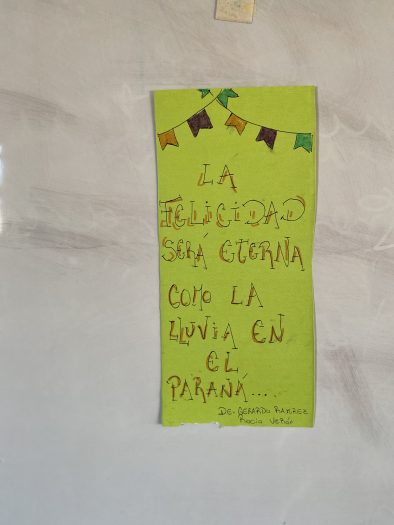 LA
FELICIDAD
SERÁ ETERNA
COMO LA
LLUVIA EN
EL
PARANÁ....
DE. GERARDO RAMREZ
Rocio